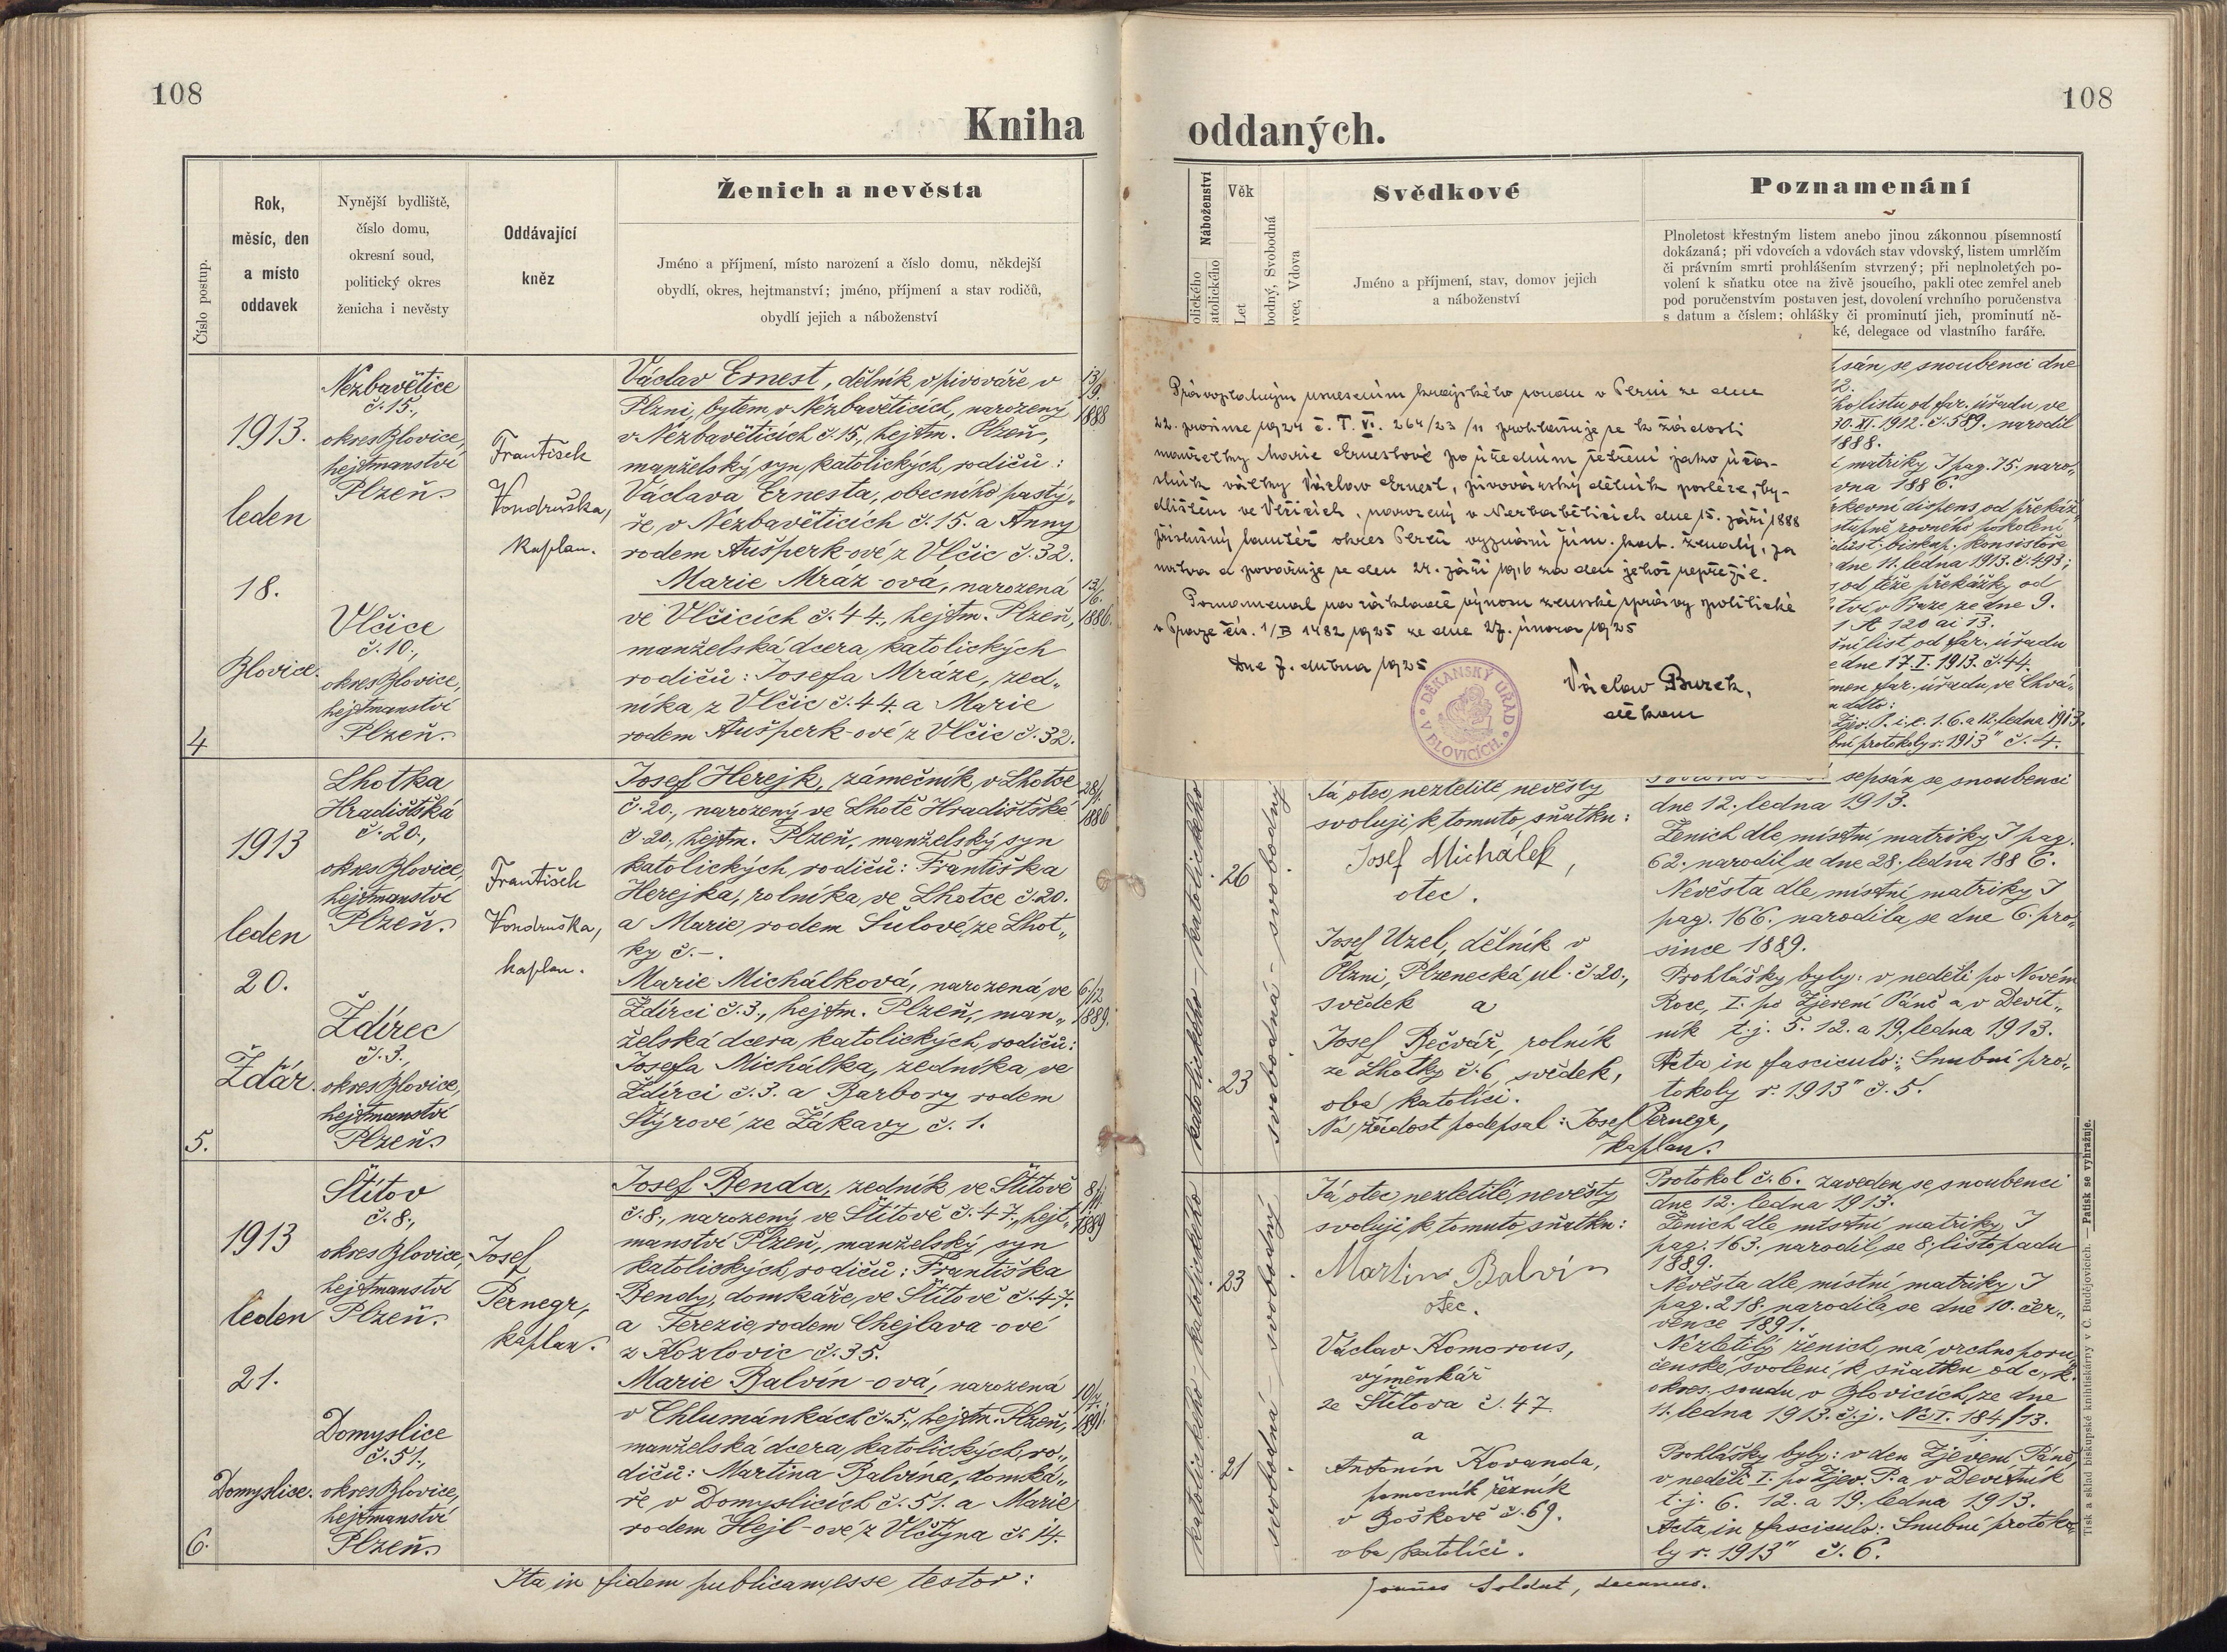 108
Kniha
Ženich a nevěsta
Číslo postup.
Rok,
měsíc, den
a místo
oddavek
Nynější bydliště,
číslo domu,
okresní soud,
politický okres
ženicha i nevěsty
Oddávající
kněz
Jméno a příjmení, místo narození a číslo domu, někdejší
obydlí, okres, hejtmanství; jméno, příjmení a stav rodičů,
obydlí jejich a náboženství
4
1913.
leden
18.
Blovice.
Nezbavětice
č. 15.,
okres Blovice,
hejtmanství
Plzeň.
Vlčice
č. 10.,
okres Blovice,
hejtmanství
Plzeň.
František
Vondruška,
kaplan.
Václav Ernest, dělník v pivováře v
Plzni, bytem v Nezbavěticích, narozený
v Nezbavěticích č. 15., hejtm. Plzeň,
manželský syn katolických rodičů:
Václava Ernesta, obecního pastý„
ře v Nezbavěticích č. 15. a Anny
rodem Aušperk-ové z Vlčic č. 32.
Marie Mráz-ová, narozená
ve Vlčicích č. 44., hejtm. Plzeň,
manželská dcera katolických
rodičů: Josefa Mráze, zed„
níka z Vlčic č. 44. a Marie
rodem Aušperk-ové z Vlčic č. 32.
13/9.
1888
13/6.
1886.
5.
1913
leden
20.
Ždár.
Lhotka
Hradištská
č. 20.,
okres Blovice,
hejtmanství
Plzeň.
Ždírec
č. 3.,
okres Blovice,
hejtmanství
Plzeň.
František
Vondruška,
kaplan.
Josef Herejk, zámečník v Lhotce
č. 20., narozený ve Lhotě Hradištské
č. 20., hejtm. Plzeň, manželský syn
katolických rodičů: Františka
Herejka, rolníka ve Lhotce č. 20.
a Marie rodem Šulové ze Lhot„
ky č. -.
Marie Michálková, narozená ve
Ždírci č. 3., hejtm. Plzeň, man„
želská dcera katolických rodičů:
Josefa Michálka, zedníka ve
Ždírci č. 3. a Barbory rodem
Štýrové ze Žákavy č. 1.
28/1.
1886
6/12
1889.
6.
1913
leden
21.
Domyslice.
Štítov
č. 8.,
okres Blovice,
hejtmanství
Plzeň.
Domyslice
č. 51.,
okres Blovice,
hejtmanství
Plzeň.
Josef
Pernegr,
kaplan.
Josef Benda, zedník ve Štítově
č. 8., narozený ve Štítově č. 47., hejt„
manství Plzeň, manželský syn
katolických rodičů: Františka
Bendy, domkáře ve Štítově č. 47.
a Terezie rodem Chejlava-ové
z Kozlovic č. 35.
Marie Balvín-ová, narozená
v Chlumánkách č. 5., hejtm. Plzeň,
manželská dcera katolických ro„
dičů: Martina Balvína, domká„
ře v Domyslicích č. 51. a Marie
rodem Hejl-ové z Vlčtejna č. 14.
8/11.
1889
10/7.
1891
Ita in fidem publicam esse testor:
108
oddaných.
Náboženství
olického
atolického
Věk
Let
bodný, Svobodná
ovec, Vdova
Svědkové
Jméno a příjmení, stav, domov jejich
a náboženství
Poznamenání
Plnoletost křestným listem anebo jinou zákonnou písemností
dokázaná; při vdovcích a vdovách stav vdovský, listem umrlčím
či právním smrti prohlášením stvrzený; při neplnoletých po-
volení k sňatku otce na živě jsoucího, pakli otec zemřel aneb
pod poručenstvím postaven jest, dovolení vrchního poručenstva
s datum a číslem; ohlášky či prominutí jich, prominutí ně-
ké, delegace od vlastního faráře.
Právoplatným usnesením krajského soudu v Plzni ze dne
22. prosince 1924 č. T. VI. 264/23/11 prohlašuje se k žádosti
manželky Marie Ernestové po úředním šetření jako účast-
ník války Václav Ernest, pivovárský dělník posléze, by-
dlištěm ve Vlčicích, narozený v Nezbaběticích dne 15. září 1888
příslušný tamtéž okres Plzeň vyznání řím. kat. ženatý, za
mrtva a považuje se den 24. září 1916 za den jehož nepřežil.
Poznamenal na základě výnosu zemské správy politické
v Praze čís. 1/B 1482 1925 ze dne 27. února 1925
Dne 7. dubna 1925
Václav Burek,
děkan
DĚKANSKÝ ÚŘAD V BLOVICÍCH.
sán se snoubenci dne
ho listu od far. úřadu ve
30. XI. 1912. č. 589. narodil
1888.
matriky I pag. 75. naro„
vna 1886.
rkevní dispens od překáž„
stupně rovného pokolení
důst. biskup. konsistoře
dne 11. ledna 1913. č. 493;
od téže překážky od
tví v Praze ze dne 9.
1 A 120 ai 13.
šní list od far. úřadu
e dne 17. I. 1913. č. 44.
men far. úřadu ve Chvá„
a detto:
Zjev. P. i. e. 1. 6. a 12. ledna 1913.
bní protokoly r. 1913" č. 4.
katolického - katolického
26
23
svobodná - svobodný
Já otec nezletilé nevěsty
svoluji k tomuto sňatku:
Josef Michálek,
otec.
Josef Uzel, dělník v
Plzni, Plzenecká ul. č. 20.,
svědek a
Josef Bečvář, rolník
ze Lhotky č. 6 svědek,
oba katolíci.
Na žádost podepsal: Josef Pernegr,
kaplan.
sepsán se snoubenci
dne 12. ledna 1913.
Ženich dle místní matriky I pag.
62. narodil se dne 28. ledna 1886.
Nevěsta dle místní matriky I
pag. 166. narodila se dne 6. pro„
since 1889.
Prohlášky byly: v neděli po Novém
Roce, I. po Zjevení Páně a v Devít„
ník t. j. 5. 12. a 19. ledna 1913.
Acta in fasciculo: „Snubní pro„
tokoly r. 1913" č. 5.
katolického - katolického
23
21
svobodná - svobodný
Já otec nezletilé nevěsty
svoluji k tomuto sňatku:
Martin Balvín
otec.
Václav Komorous,
výměnkář
ze Štítova č. 47
a
Antonín Kovanda,
pomocník řezník
v Boškově č. 69.
oba katolíci.
Protokol č. 6. zaveden se snoubenci
dne 12. ledna 1913.
Ženich dle místní matriky I
pag. 163. narodil se 8. listopadu
1889.
Nevěsta dle místní matriky I
pag. 218. narodila se dne 10. čer„
vence 1891.
Nezletilý ženich má vrchnoporu„
čenské svolení k sňatku od c. k.
okres. soudu v Blovicích ze dne
11. ledna 1913. č. j. Nc I. 184/13.
Prohlášky byly: v den Zjevení Páně,
v neděli I. po Zjev. P. a v Devítník
t. j. 6. 12. a 19. ledna 1913.
Acta in fasciculo: „Snubní protoko„
ly r. 1913" č. 6.
Soldat, decanus.
Tisk a sklad biskupské knihtiskárny v Č. Budějovicích. — Patisk se vyhražuje.